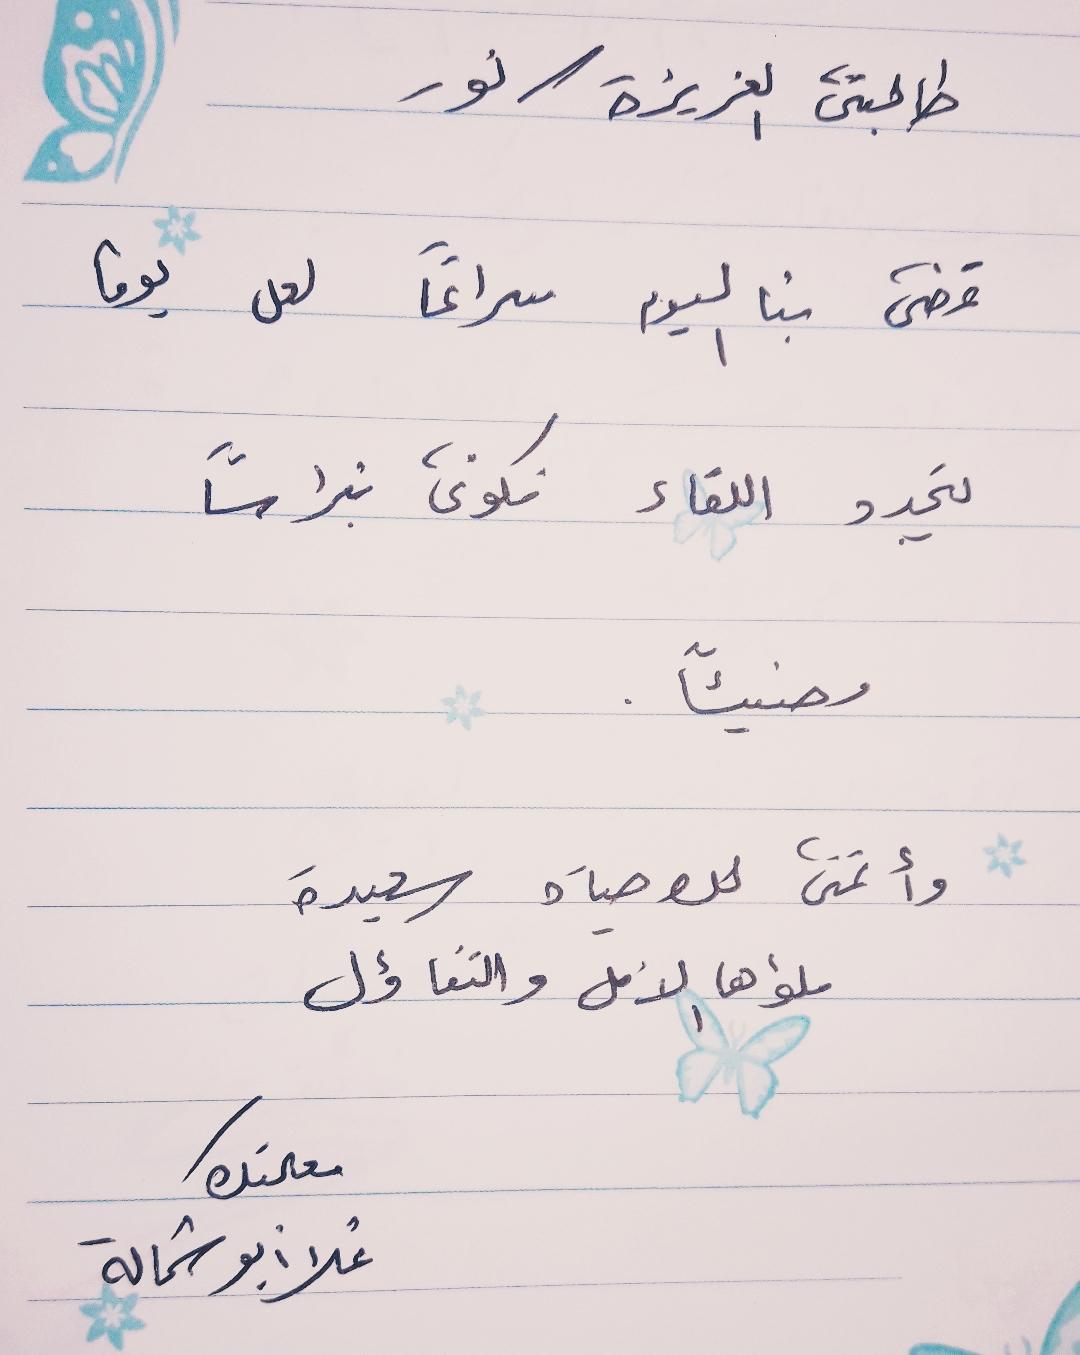 طالبتي العزيزة / نور
تمضي بنا اليوم سراعًا لعل يومًا
يتجدد اللقاء فكوني نبراسًا
مضيئًا .
وأتمنى لك حياة سعيدة
ملؤها الأمل والتفاؤل
معلمتك
علا أبو شمالة